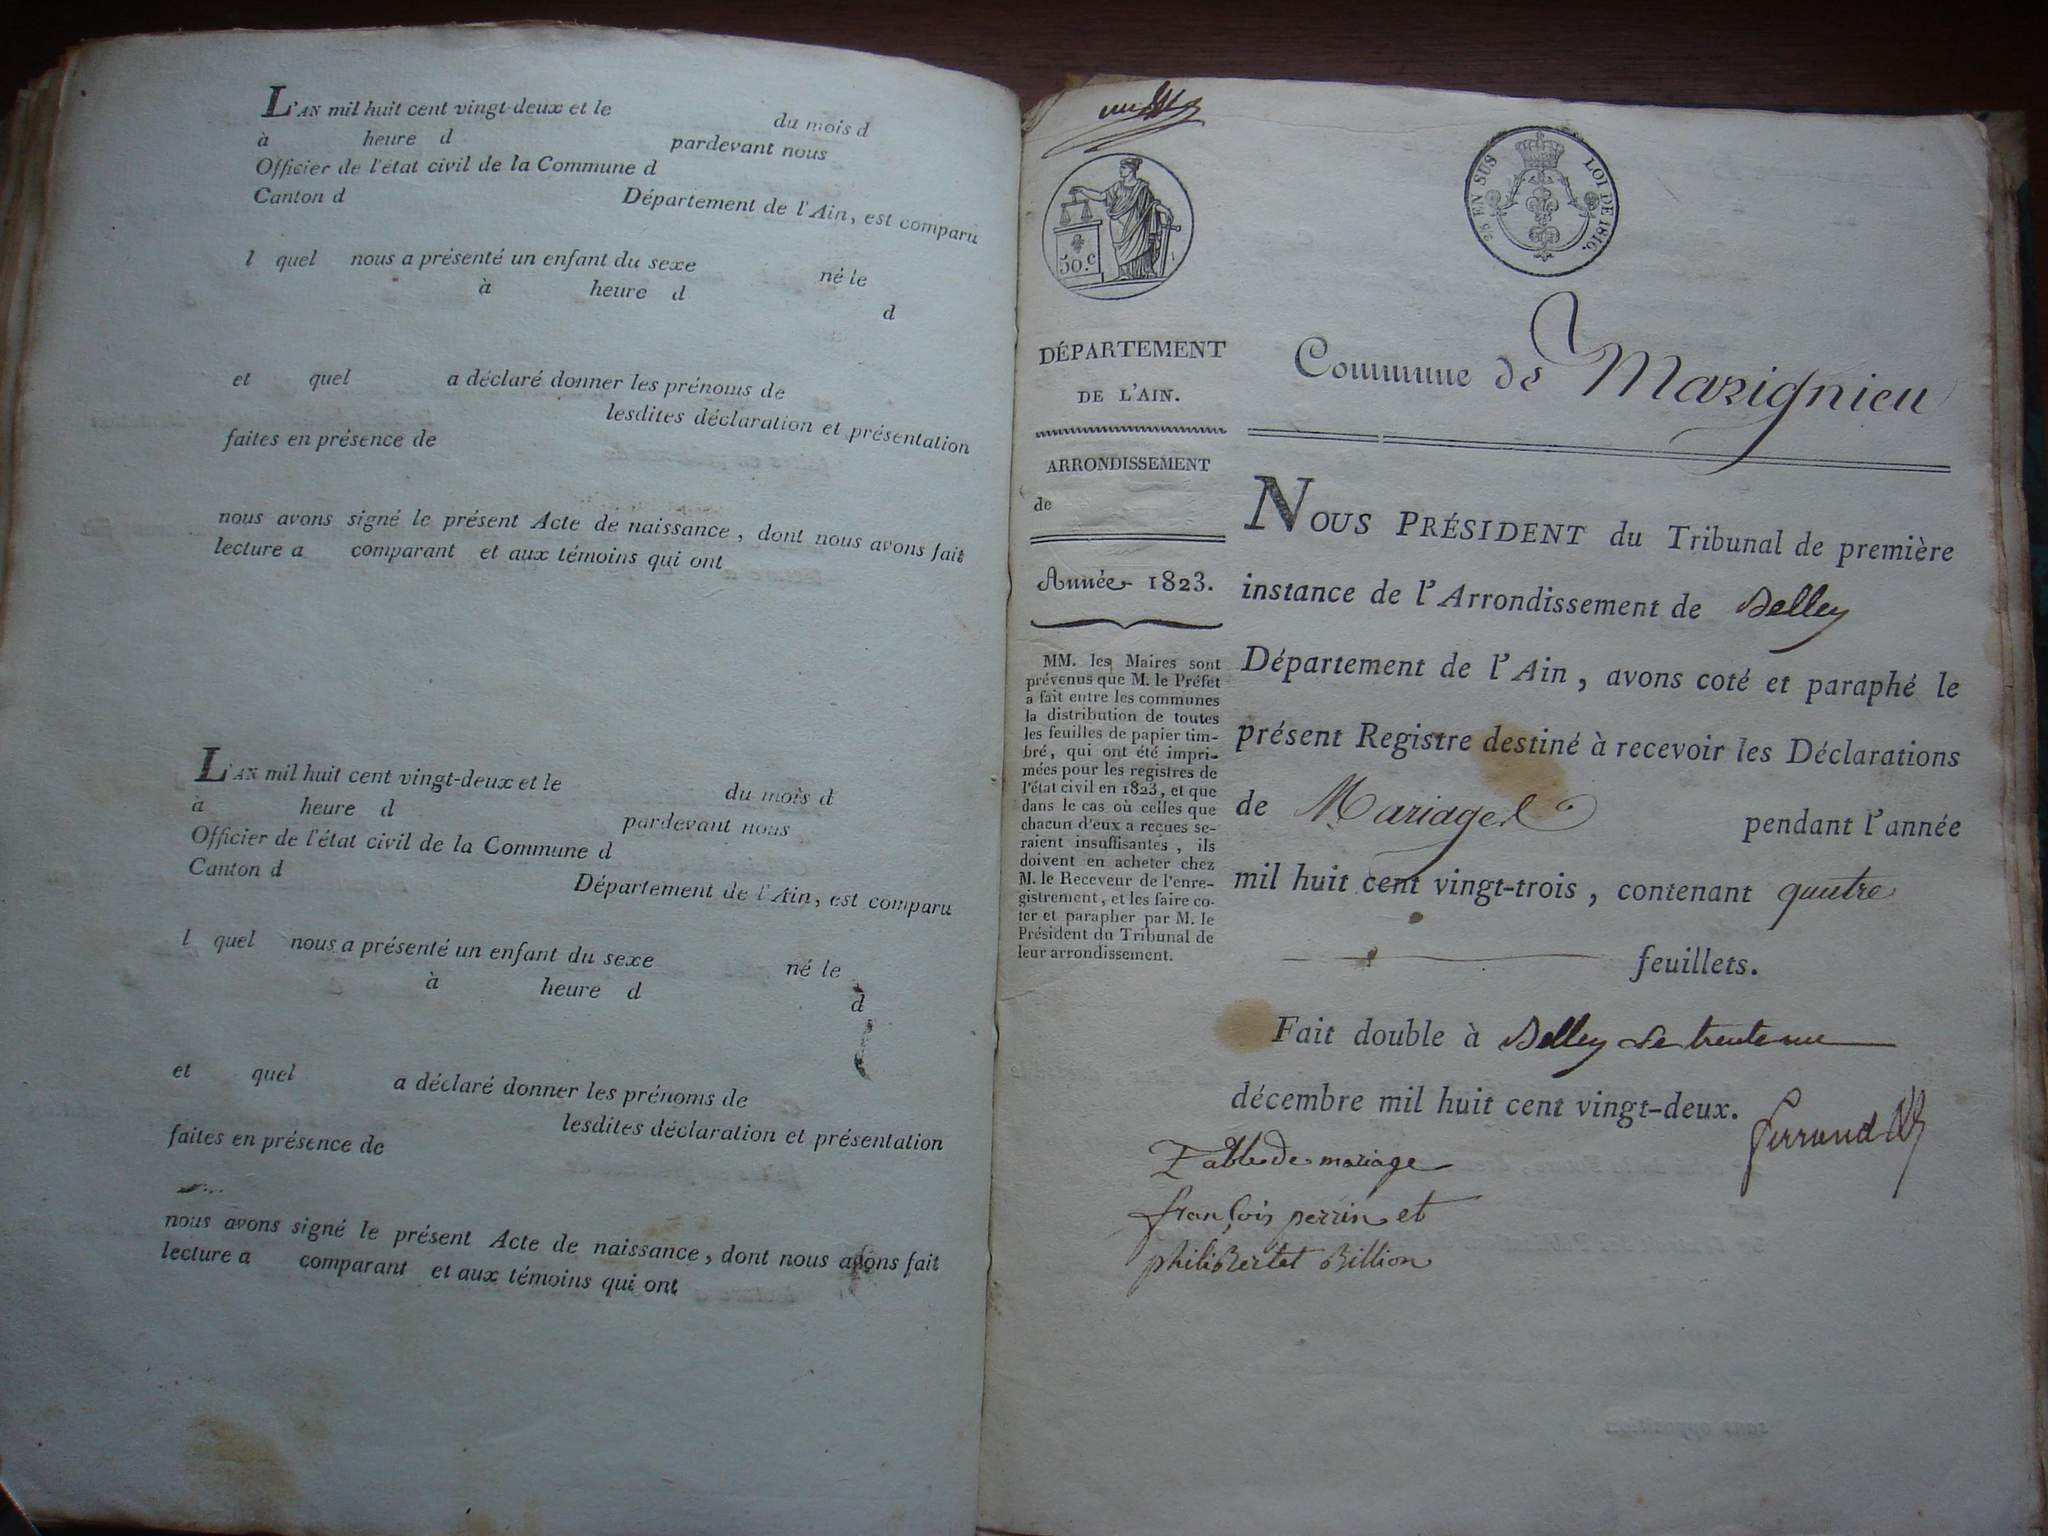 L'AN mil huit cent vingt-deux et le du mois d
à heure d pardevant nous
Officier de l'état civil de la Commune d
Canton d Département de l'Ain, est comparu
l quel nous a présenté un enfant du sexe né le
à heure d
d
et quel a déclaré donner les prénoms de
lesdites déclaration et présentation
faites en présence de
nous avons signé le présent Acte de naissance, dont nous avons fait
lecture a comparant et aux témoins qui ont
L'AN mil huit cent vingt-deux et le du mois d
à heure d pardevant nous
Officier de l'état civil de la Commune d
Canton d Département de l'Ain, est comparu
l quel nous a présenté un enfant du sexe né le
à heure d
d
et quel a déclaré donner les prénoms de
lesdites déclaration et présentation
faites en présence de
nous avons signé le présent Acte de naissance, dont nous avons fait
lecture a comparant et aux témoins qui ont
50.c
25 EN SUS LOI DE 1816.
DÉPARTEMENT
DE L'AIN.
ARRONDISSEMENT
de
Année 1823.
MM. les Maires sont
prévenus que M. le Préfet
a fait entre les communes
la distribution de toutes
les feuilles de papier tim-
bré, qui ont été impri-
mées pour les registres de
l'état civil en 1823, et que
dans le cas où celles que
chacun d'eux a reçues se-
raient insuffisantes, ils
doivent en acheter chez
M. le Receveur de l'enre-
gistrement, et les faire co-
ter et parapher par M. le
Président du Tribunal de
leur arrondissement.
Commune de Marignieu
NOUS PRÉSIDENT du Tribunal de première
instance de l'Arrondissement de Belley
Département de l'Ain, avons coté et paraphé le
présent Registre destiné à recevoir les Déclarations
de Mariages pendant l'année
mil huit cent vingt-trois, contenant quatre
feuillets.
Fait double à Belley le trente un
décembre mil huit cent vingt-deux.
Table de mariage
françois perrin et
philiBertet Billion